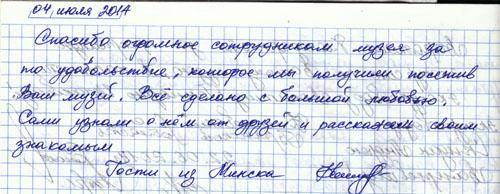 04 июля 2017
Спасибо огромное сотрудникам музея за
то удовольствие, которое мы получили посетив
Ваш музей. Всё сделано с большой любовью.
Сами узнали о нём от друзей и расскажем своим
знакомым
Гости из Минска